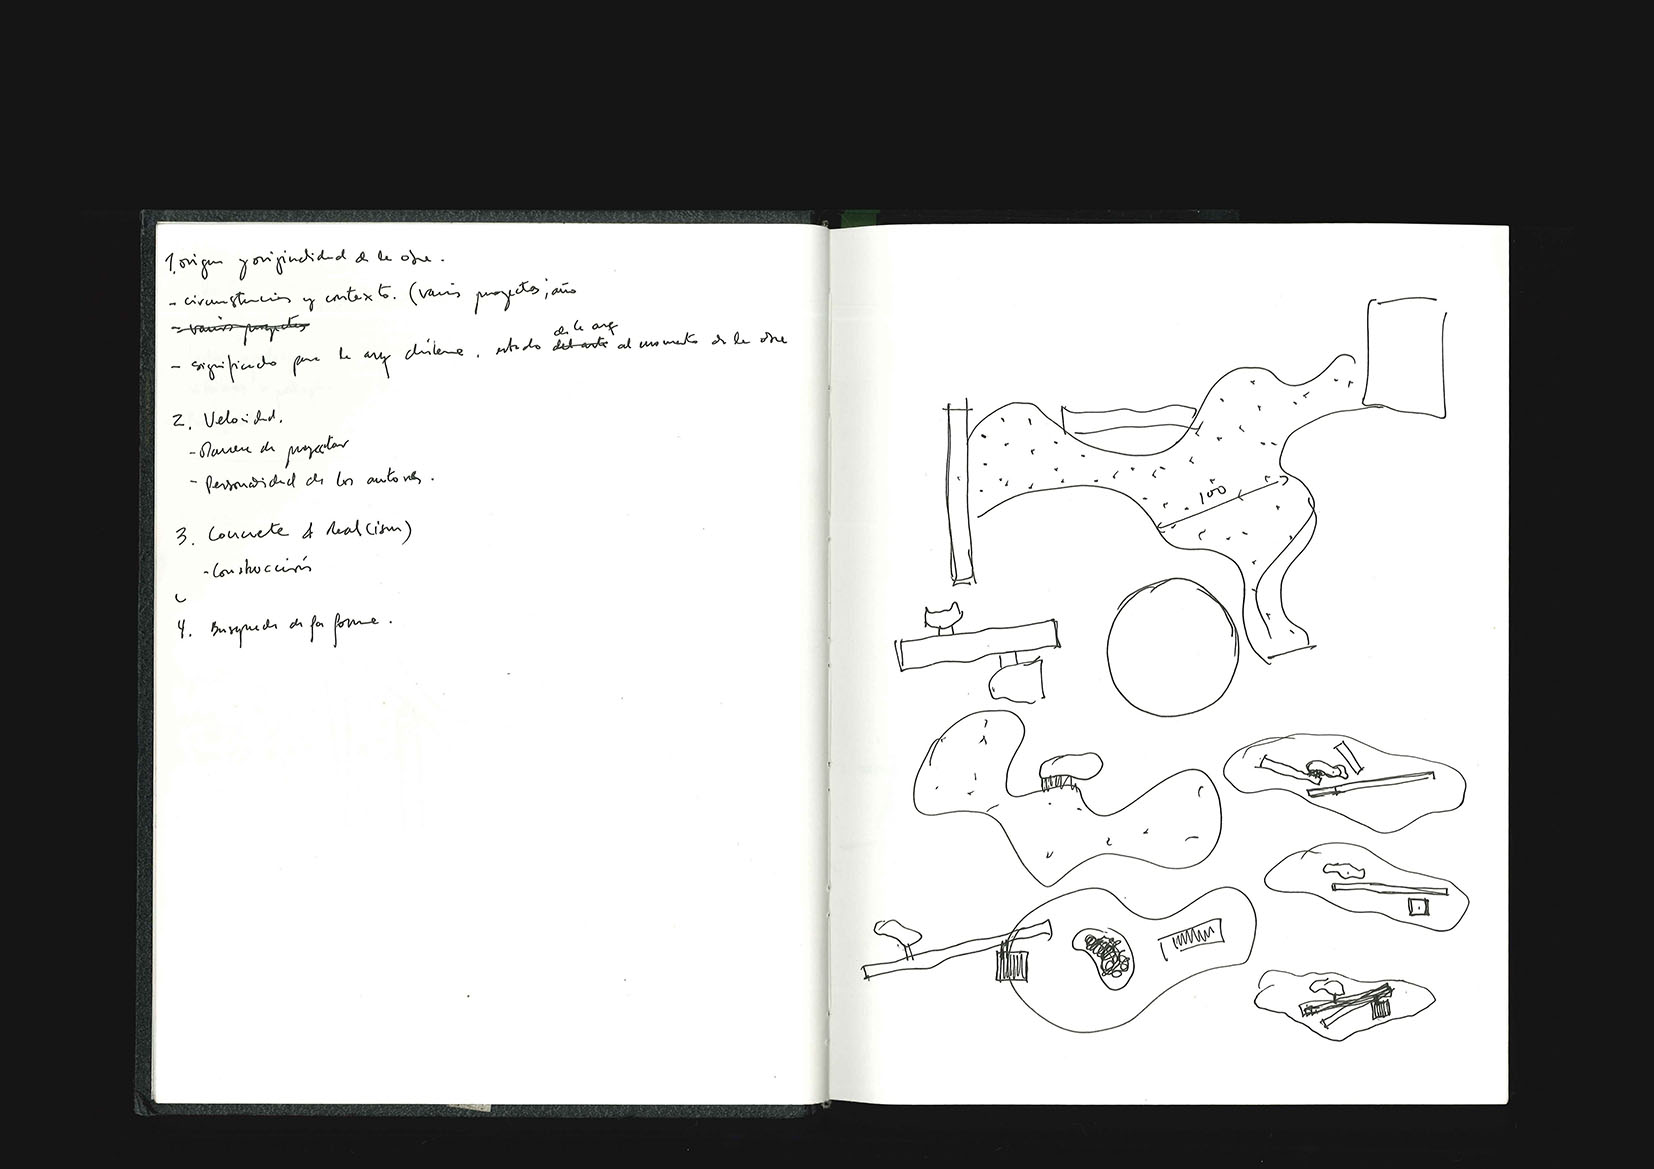 1. origen y originalidad de la obra.
- circunstancias y contexto. (varios proyectos, año
- varios proyectos
- significado para la arq chilena. estado del arte de la arq al momento de la obra
2. Velocidad.
- Manera de proyectar
- Personalidad de los autores.
3. Concrete & Real(ism)
- Construcción
4. Busqueda de la forma.
100